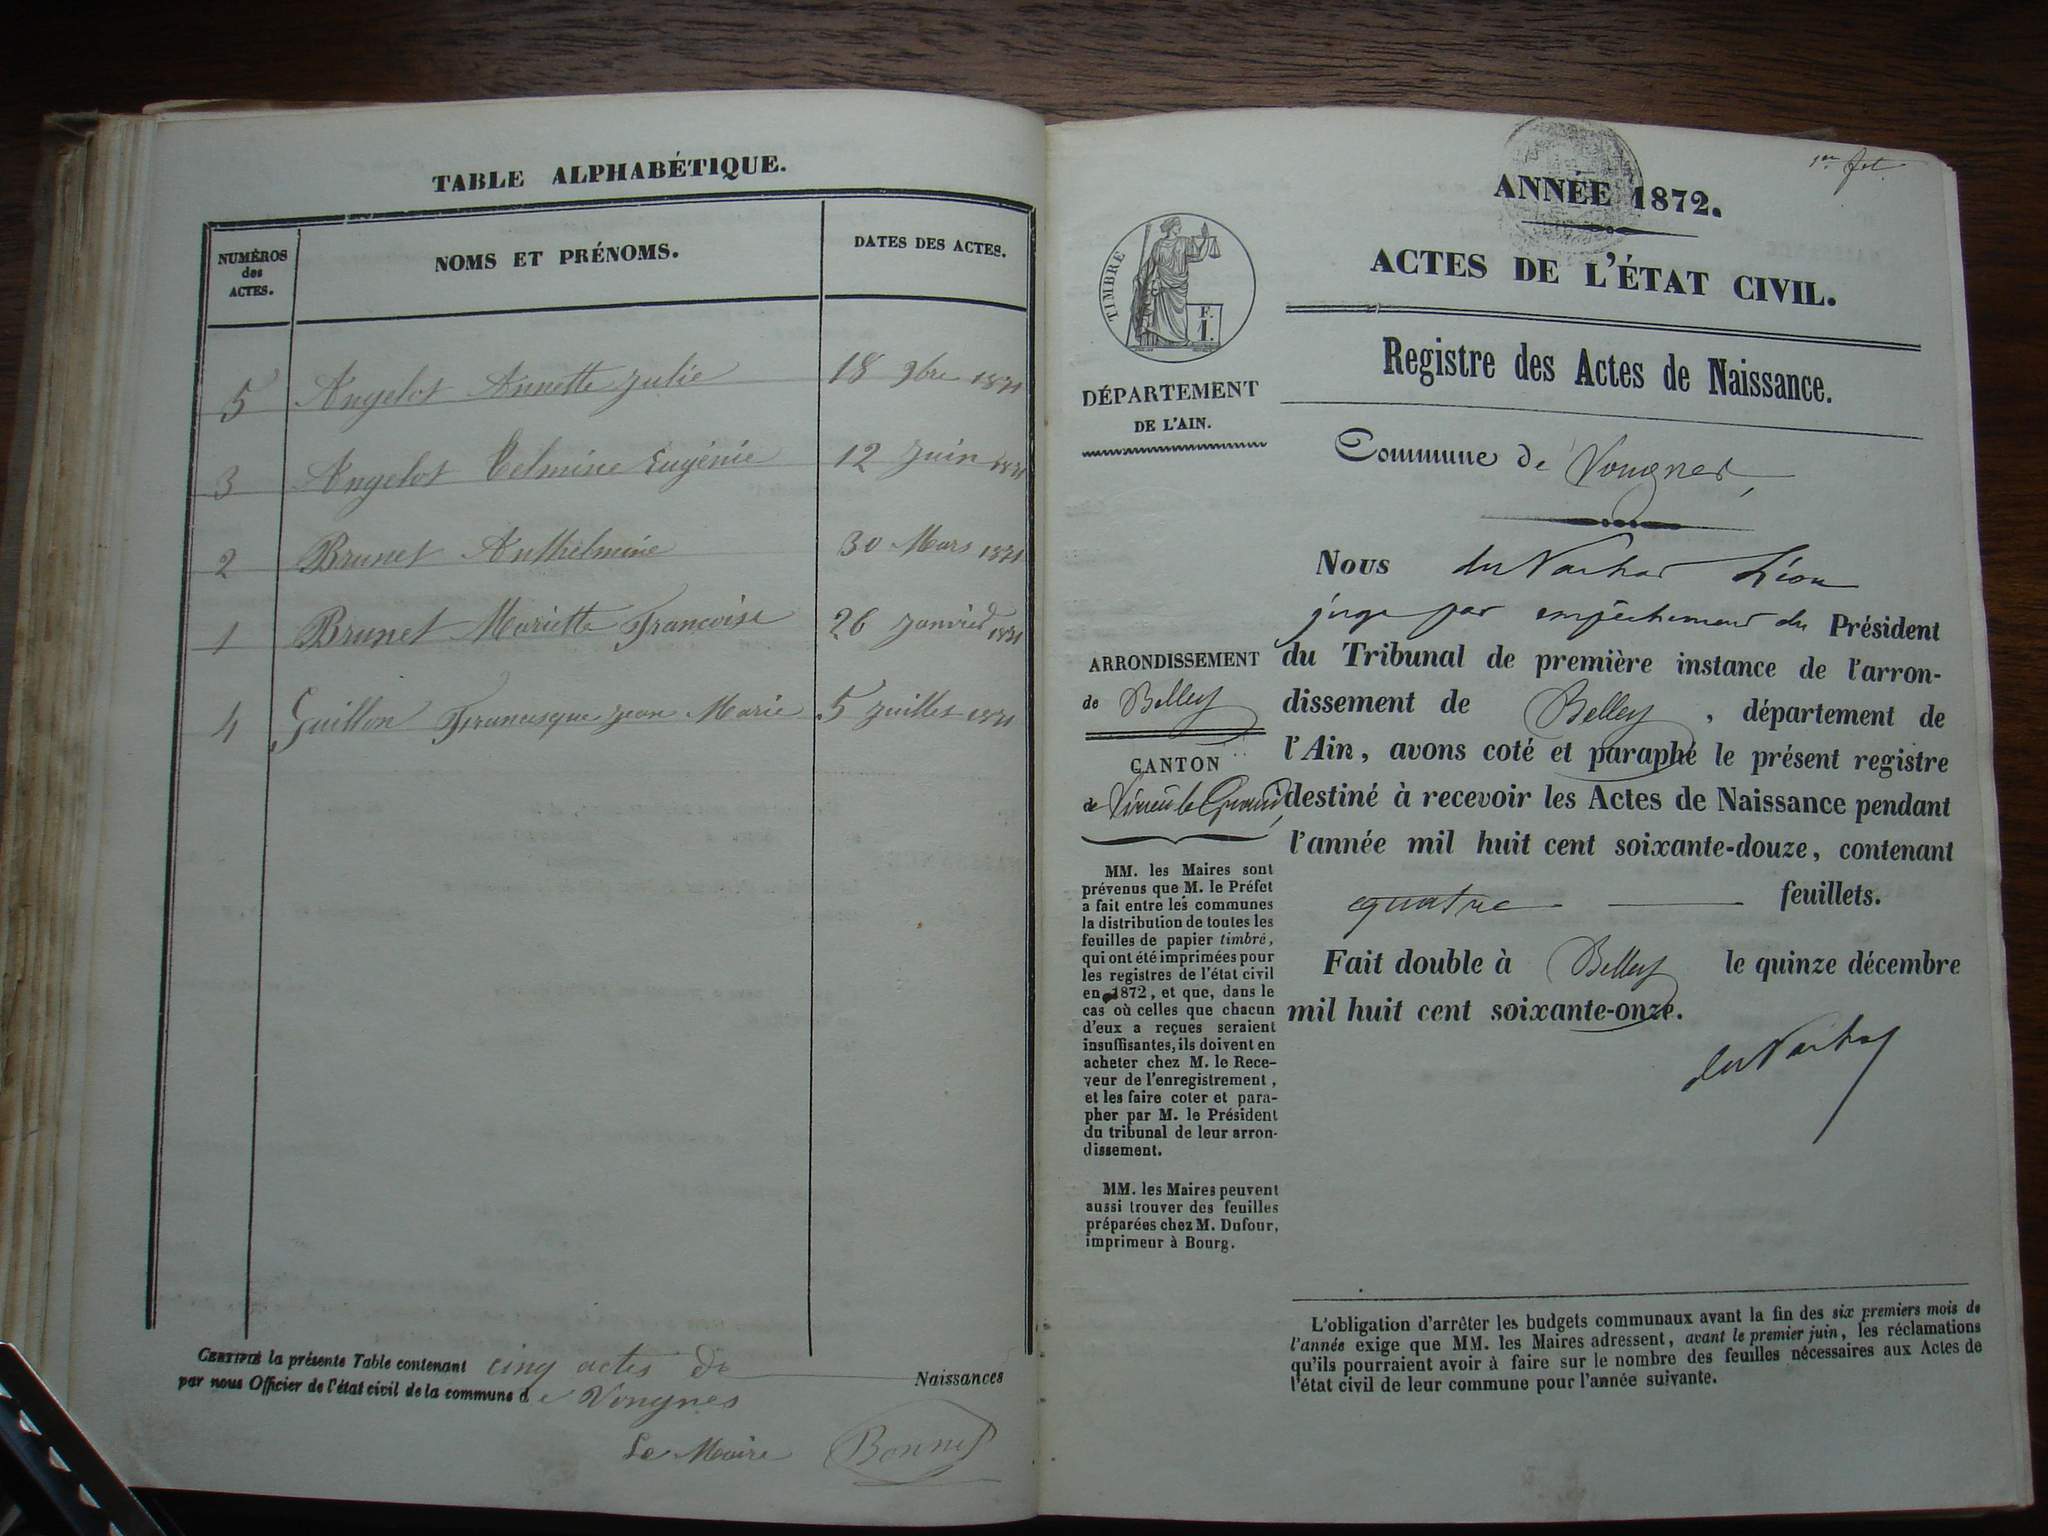 TABLE ALPHABÉTIQUE.
NUMÉROS des ACTES.
NOMS ET PRÉNOMS.
DATES DES ACTES.
5 Angelot Annette Julie 18 9bre 1871
3 Angelot Celmine Eugénie 12 Juin 1871
2 Brunet Anthelmine 30 Mars 1871
1 Brunet Mariette Françoise 26 Janvier 1871
4 Guillon Francisque Jean Marie 5 Juillet 1871
CERTIFIÉ la présente Table contenant cinq actes de Naissances
par nous Officier de l'état civil de la commune de Vongnes
Le Maire Bonnet
1er fet.
ANNÉE 1872.
ACTES DE L'ÉTAT CIVIL.
Registre des Actes de Naissance.
TIMBRE
F.
1.
DÉPARTEMENT
DE L'AIN.
Commune de Vongnes,
Nous Léon
juge par empêchement du Président
du Tribunal de première instance de l'arron-
dissement de Belley, département de
l'Ain, avons coté et paraphé le présent registre
destiné à recevoir les Actes de Naissance pendant
l'année mil huit cent soixante-douze, contenant
quatre feuillets.
Fait double à Belley le quinze décembre
mil huit cent soixante-onze.
ARRONDISSEMENT
de Belley
CANTON
de Virieu le Grand,
MM. les Maires sont
prévenus que M. le Préfet
a fait entre les communes
la distribution de toutes les
feuilles de papier timbré,
qui ont été imprimées pour
les registres de l'état civil
en 1872, et que, dans le
cas où celles que chacun
d'eux a reçues seraient
insuffisantes, ils doivent en
acheter chez M. le Rece-
veur de l'enregistrement,
et les faire coter et para-
pher par M. le Président
du tribunal de leur arron-
dissement.
MM. les Maires peuvent
aussi trouver des feuilles
préparées chez M. Dufour,
imprimeur à Bourg.
L'obligation d'arrêter les budgets communaux avant la fin des six premiers mois de
l'année exige que MM. les Maires adressent, avant le premier juin, les réclamations
qu'ils pourraient avoir à faire sur le nombre des feuilles nécessaires aux Actes de
l'état civil de leur commune pour l'année suivante.